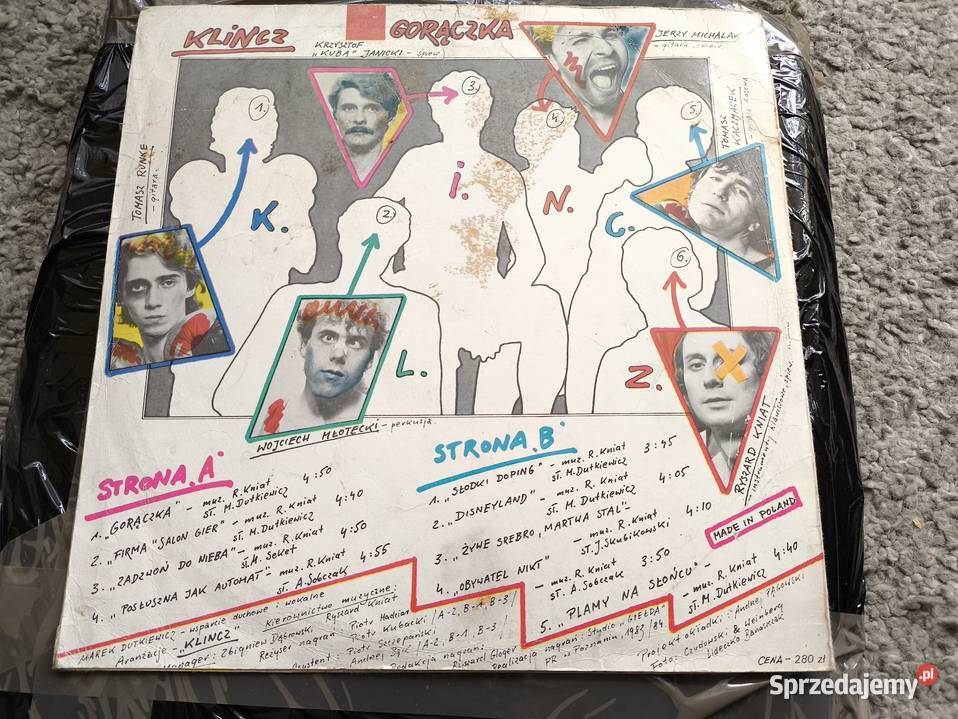 KLINCZ
GORĄCZKA
KRZYSZTOF
„KUBA" JANICKI - śpiew
JERZY MICHALAK
- gitara
TOMASZ RUNKE
- gitara
TOMASZ
KACZMAREK
- gitara basowa
1.
2.
3.
4.
5.
6.
K.
L.
I.
N.
C.
Z.
WOJCIECH MŁOTECKI - perkusja
RYSZARD KNIAT
- instrumenty klawiszowe, śpiew
STRONA A
1. „GORĄCZKA" - muz. R. Kniat 4:50
sł. M. Dutkiewicz
2. „FIRMA "SALON GIER" - muz. R. Kniat 4:40
sł. M. Dutkiewicz
3. „ZADZWOŃ DO NIEBA" - muz. R. Kniat 4:50
sł.
4. „POSŁUSZNA JAK AUTOMAT" - muz. R. Kniat 4:55
sł. A. Sobczak
STRONA B
1. „SŁODKI DOPING" - muz. R. Kniat 3:45
sł. M. Dutkiewicz
2. „DISNEYLAND" - muz. R. Kniat 4:05
sł. M. Dutkiewicz
3. „ŻYWE SREBRO, MARTHA STAL" - muz. R. Kniat 4:10
sł. J. Skubikowski
4. „OBYWATEL NIKT" - muz. R. Kniat 3:50
sł. A. Sobczak
5. „PLAMY NA SŁOŃCU" - muz. R. Kniat 4:40
sł. M. Dutkiewicz
MADE IN POLAND
MAREK DUTKIEWICZ - wsparcie duchowe i wokalne
Aranżacje - „KLINCZ" Kierownictwo muzyczne: Ryszard Kniat
Manager: Zbigniew Dąbrowski
Reżyser nagrań Piotr Madziar
Piotr Kubacki /A-2, B-1, B-3/
Asystent: Piotr Szczepański
Andrzej Bąk /A-2, B-1, B-3/
Redakcja nagrań: Ryszard Gloger
Realizacja nagrań: Studio „GIEŁDA"
PR w Poznaniu 1983/84
Projekt okładki: Andrzej Pągowski
Foto: Czudowski & Weinberg
CENA - 280 zł
Sprzedajemy.pl